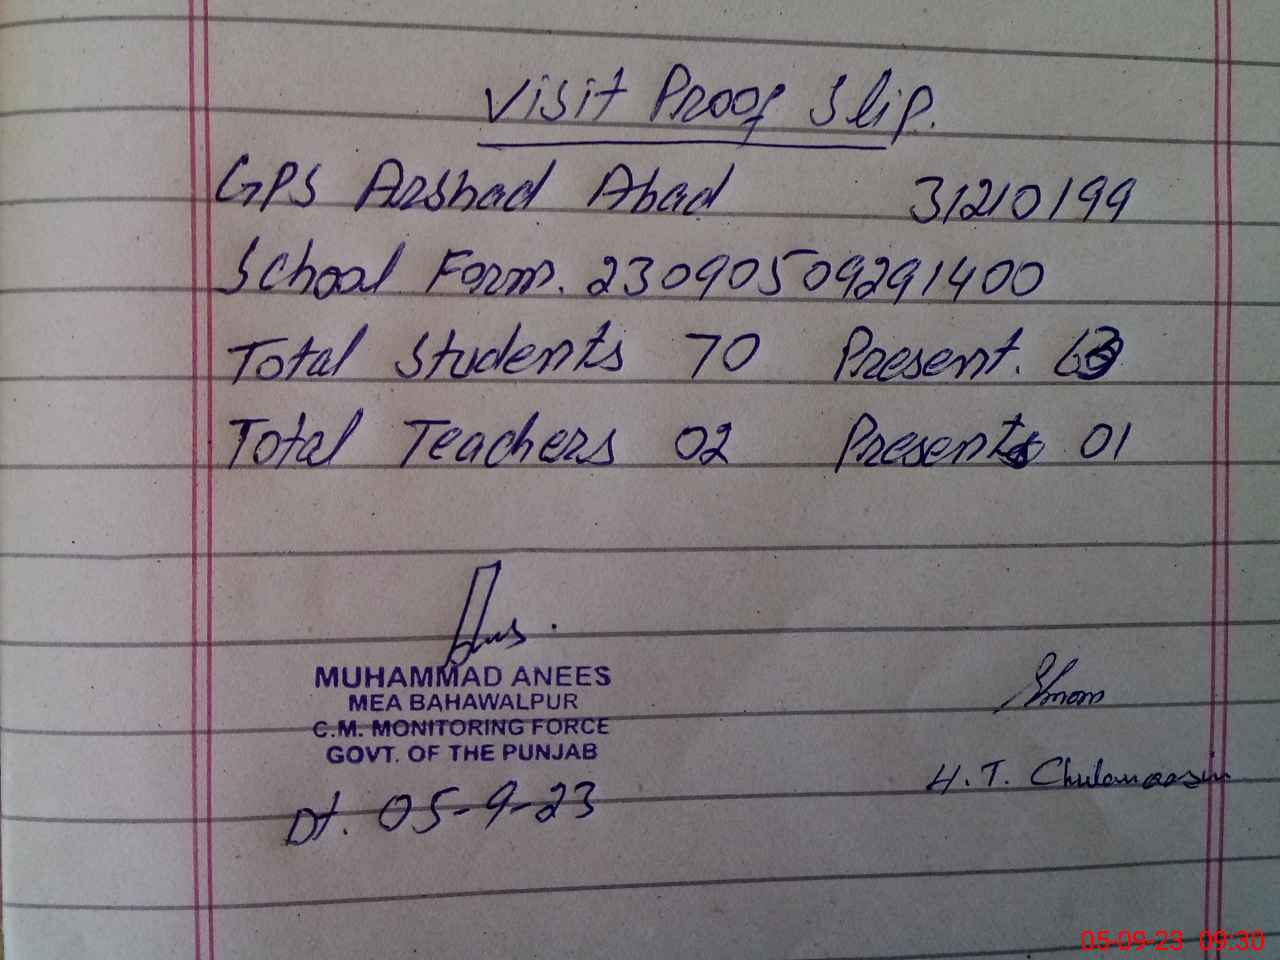 Visit Proof Slip.
GPS Arshad Abad 31210199
School Form. 23090509291400
Total Students 70 Present. 63
Total Teachers 02 Present 01
MUHAMMAD ANEES
MEA BAHAWALPUR
C.M. MONITORING FORCE
GOVT. OF THE PUNJAB
Dt. 05-9-23
H.T.
05-09-23 09:30